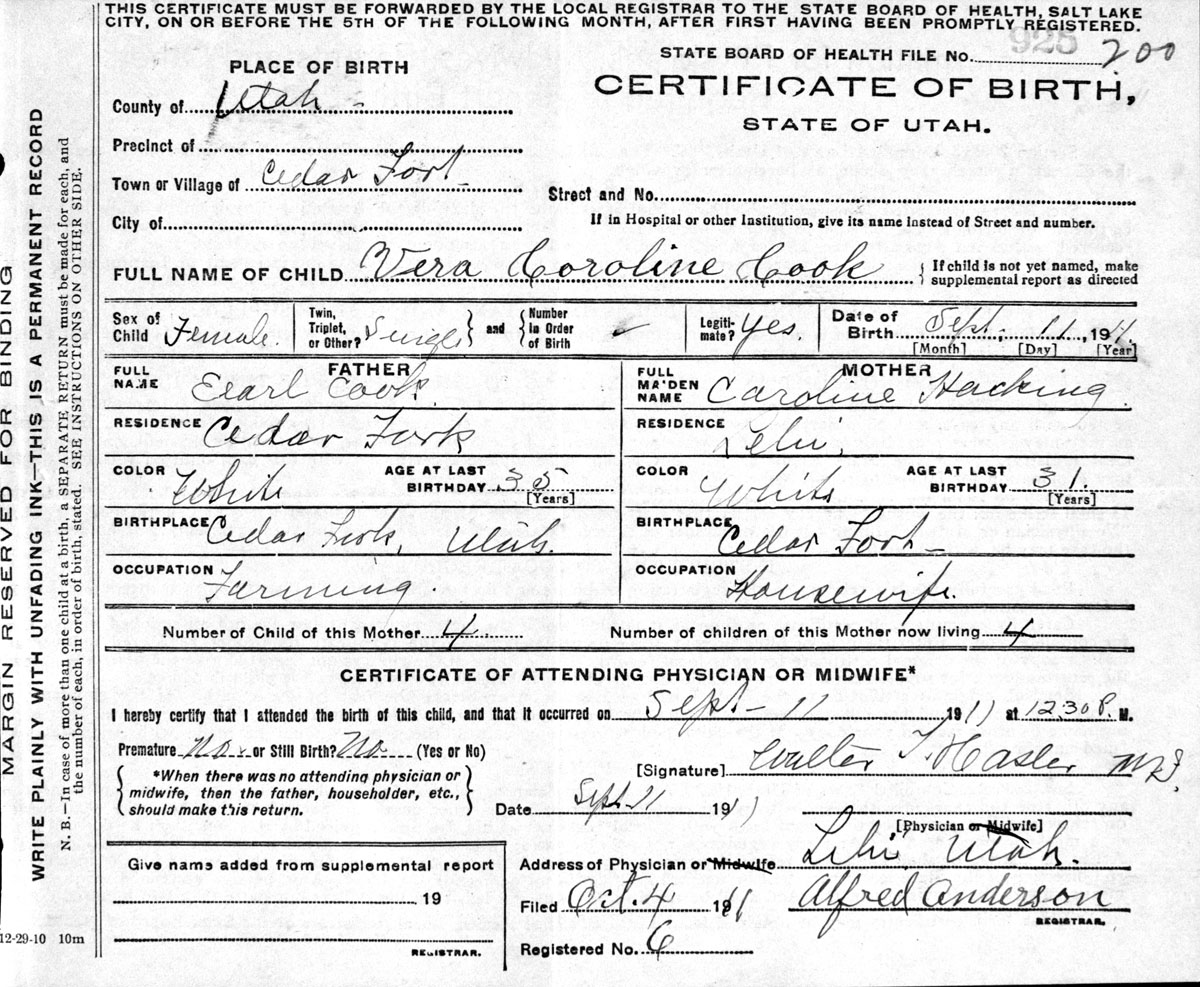 THIS CERTIFICATE MUST BE FORWARDED BY THE LOCAL REGISTRAR TO THE STATE BOARD OF HEALTH, SALT LAKE
CITY, ON OR BEFORE THE 5TH OF THE FOLLOWING MONTH, AFTER FIRST HAVING BEEN PROMPTLY REGISTERED.
STATE BOARD OF HEALTH FILE No. 925 200
PLACE OF BIRTH
CERTIFICATE OF BIRTH,
STATE OF UTAH.
County of Utah
Precinct of
Town or Village of Cedar Fort
Street and No.
City of
If in Hospital or other Institution, give its name instead of Street and number.
FULL NAME OF CHILD Vera Coroline Cook
If child is not yet named, make
supplemental report as directed
Sex of Child Female
Twin, Triplet, or Other? Single
and
Number in Order of Birth
Legiti- mate? Yes.
Date of Birth Sept, 11, 1911
[Month] [Day] [Year]
FATHER
FULL NAME Earl Cook
RESIDENCE Cedar Fork
COLOR White
AGE AT LAST BIRTHDAY 35
[Years]
BIRTHPLACE Cedar Fork, Utah.
OCCUPATION Farming
MOTHER
FULL MAIDEN NAME Caroline Hacking
RESIDENCE Lehi,
COLOR White
AGE AT LAST BIRTHDAY 31.
[Years]
BIRTHPLACE Cedar Fort
OCCUPATION Housewife
Number of Child of this Mother 4. Number of children of this Mother now living 4
CERTIFICATE OF ATTENDING PHYSICIAN OR MIDWIFE*
I hereby certify that I attended the birth of this child, and that it occurred on Sept 11 1911 at 12.30 P. M.
Premature No or Still Birth? No (Yes or No)
*When there was no attending physician or
midwife, then the father, householder, etc.,
should make this return.
[Signature] Walter T. Hasler
Date Sept 11 1911
[Physician or Midwife]
Give name added from supplemental report
19
REGISTRAR.
Address of Physician or Midwife Lehi Utah.
Filed Oct. 4 1911 Alfred Anderson
REGISTRAR.
Registered No. 6
MARGIN RESERVED FOR BINDING
WRITE PLAINLY WITH UNFADING INK—THIS IS A PERMANENT RECORD
N. B.—In case of more than one child at a birth, a SEPARATE RETURN must be made for each, and
the number of each, in order of birth, stated. SEE INSTRUCTIONS ON OTHER SIDE.
12-29-10 10m